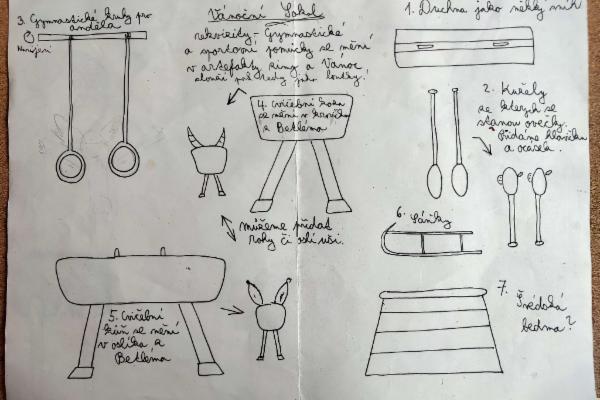 Vánoční Sokol
rekvizity - Gymnastické
a sportovní pomůcky se mění
v artefakty a Vánoc
jako loutky!
1. Duchna jako měkký sníh
2. Kužely
ze kterých se
stanou ovečky.
Přidáme hlavičku
a ocásek.
3. Gymnastické kruhy pro
anděla
4. Cvičební koza
se mění v kozičku
z Betléma
můžeme přidat
rohy či oslí uši.
5. Cvičební
kůň se mění
v oslíka z
Betléma
6. Sáňky
7. Švédská
bedna?